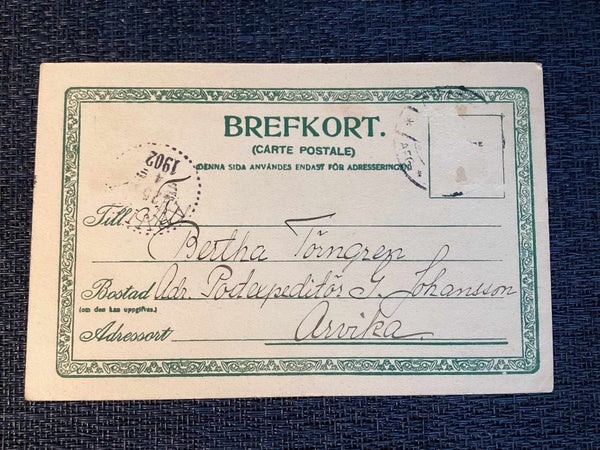 BREFKORT.
(CARTE POSTALE)
(DENNA SIDA ANVÄNDES ENDAST FÖR ADRESSERINGEN)
1902
Till
Bertha Törngren
Bostad Adr. Postexpeditör J. Johansson
(om den kan uppgifvas.)
Adressort Arvika.